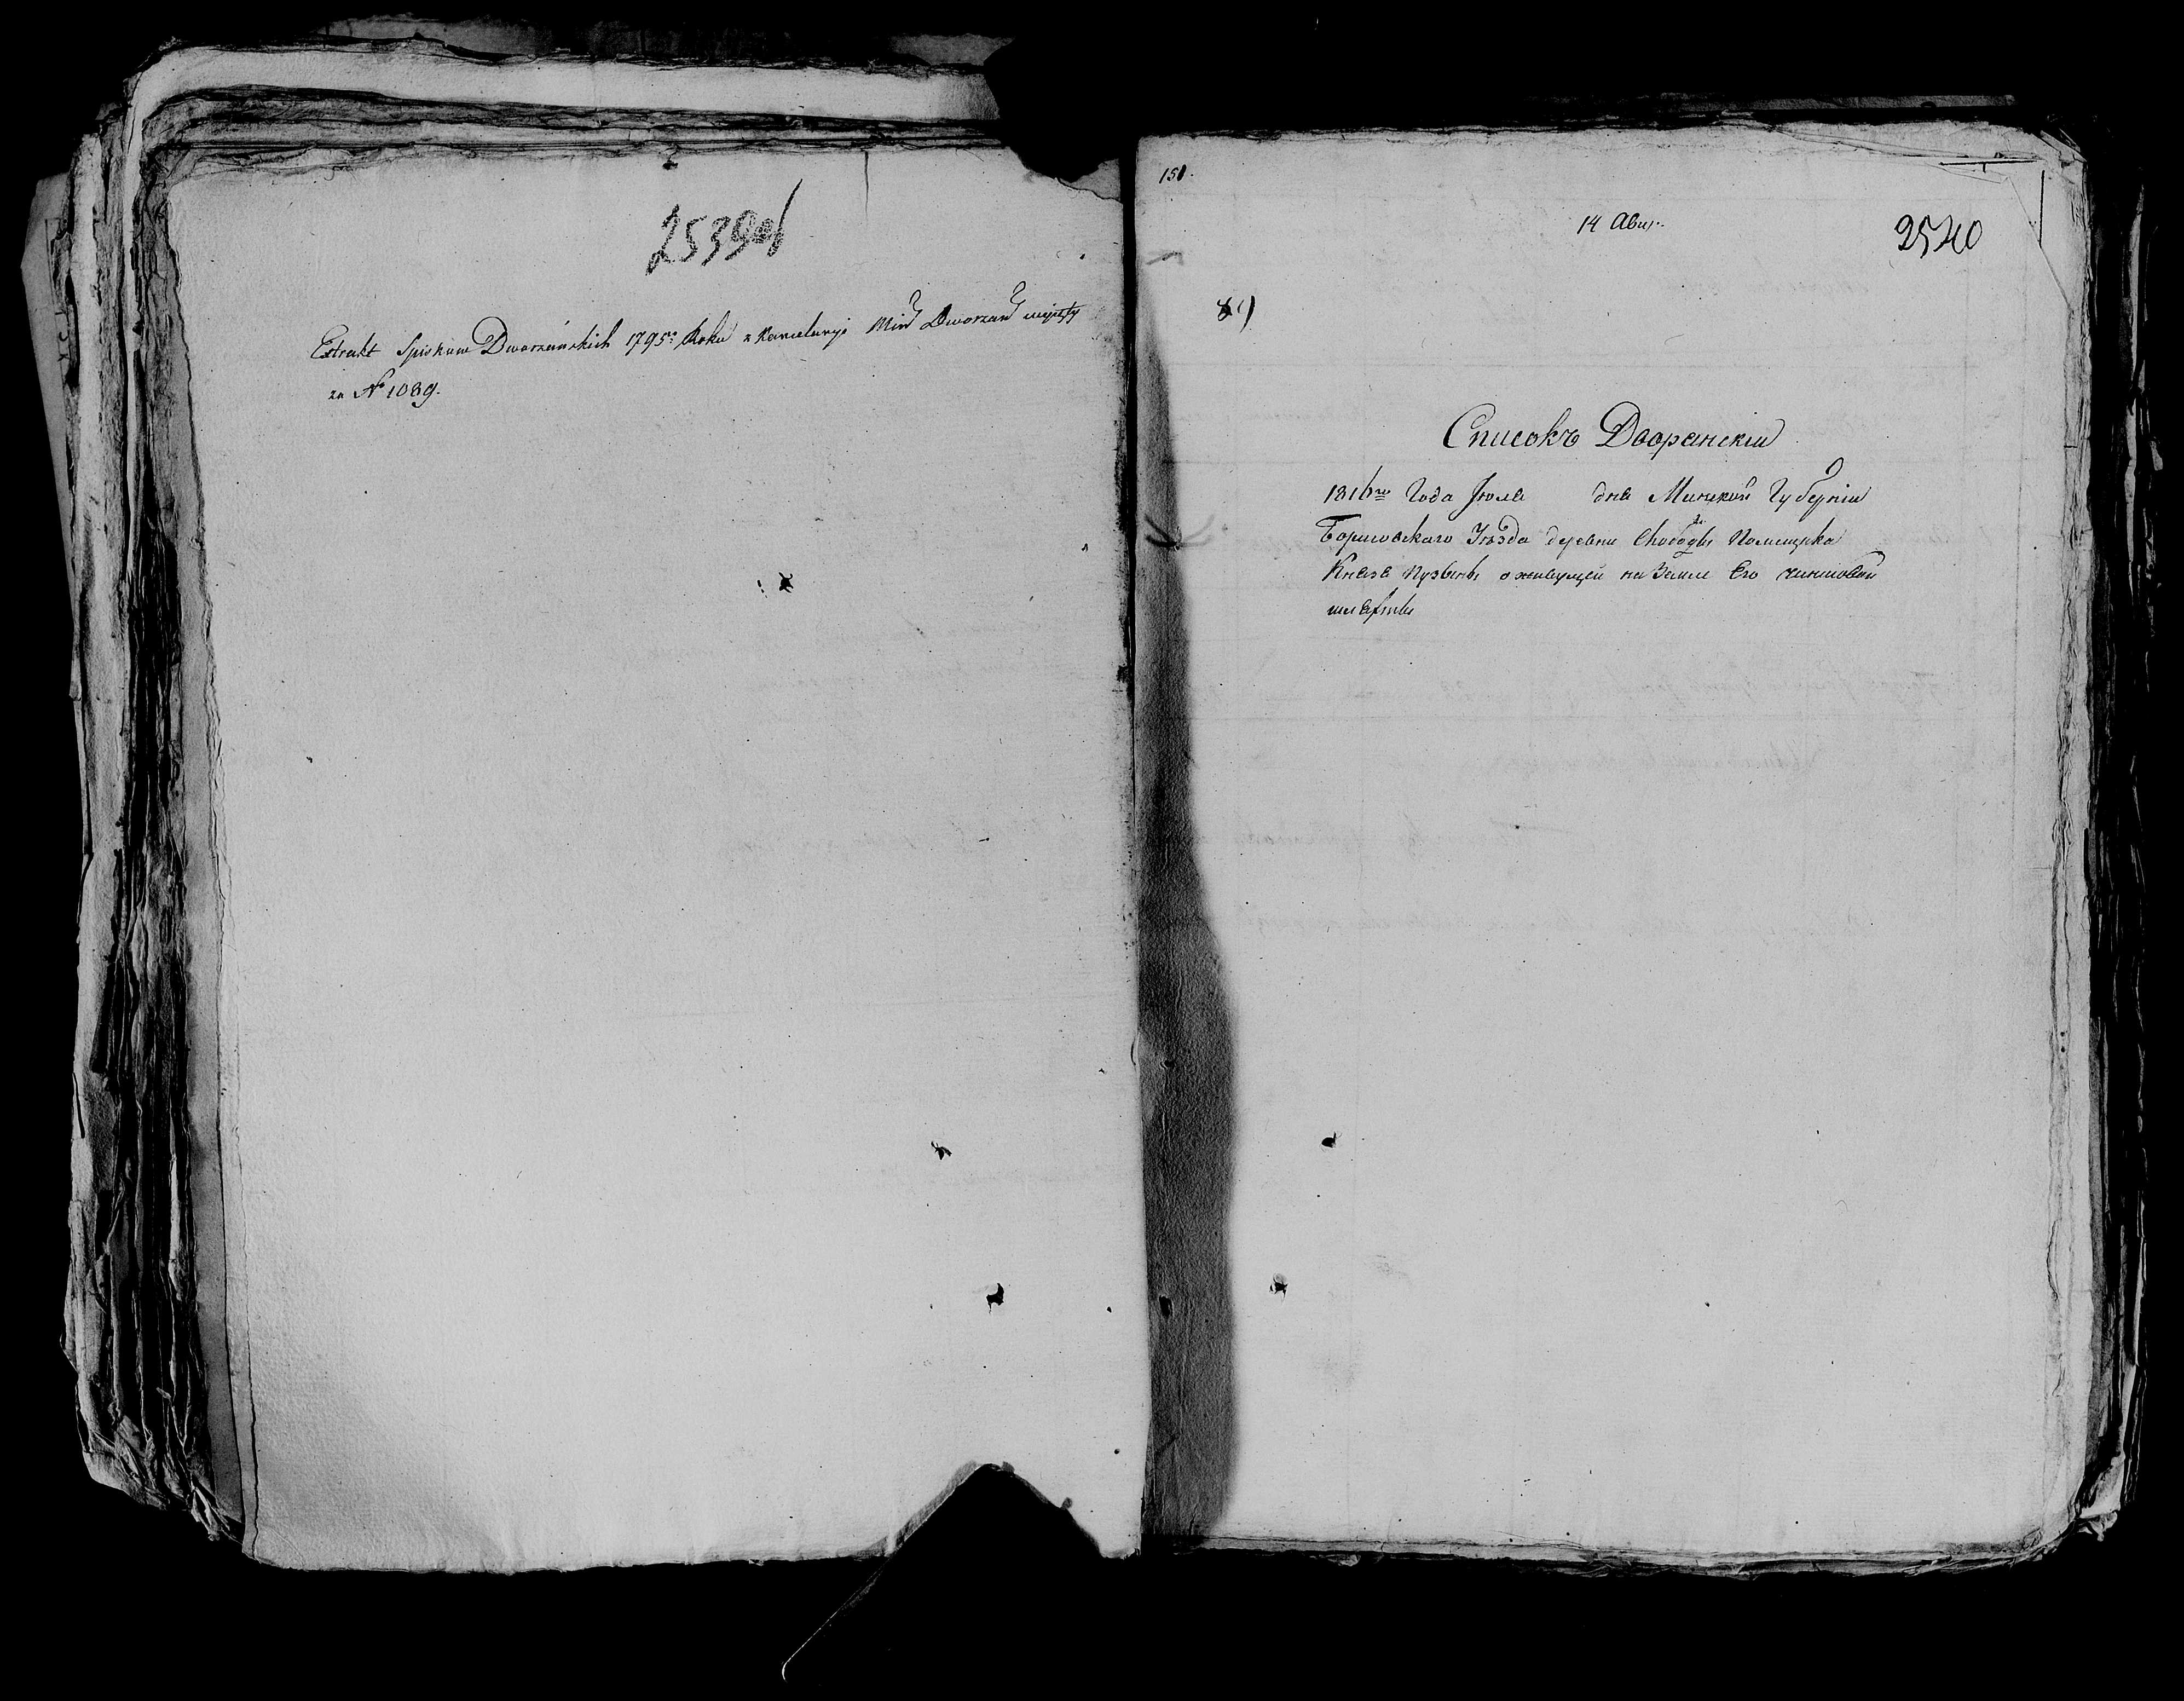 2539об
Extrakt Spiskow Dworzańskich 1795º Roku z Kancelaryi Min Dworzan wyięty
za № 1089.
151.
14 Авгу.
2540
89
Списокъ Дворянскій
1816го Года Іюля дня Минской Губерніи
Борисовскаго Уѣзда деревни Помещика
Князя о живущей на Земле Его чиншовой
шляхты